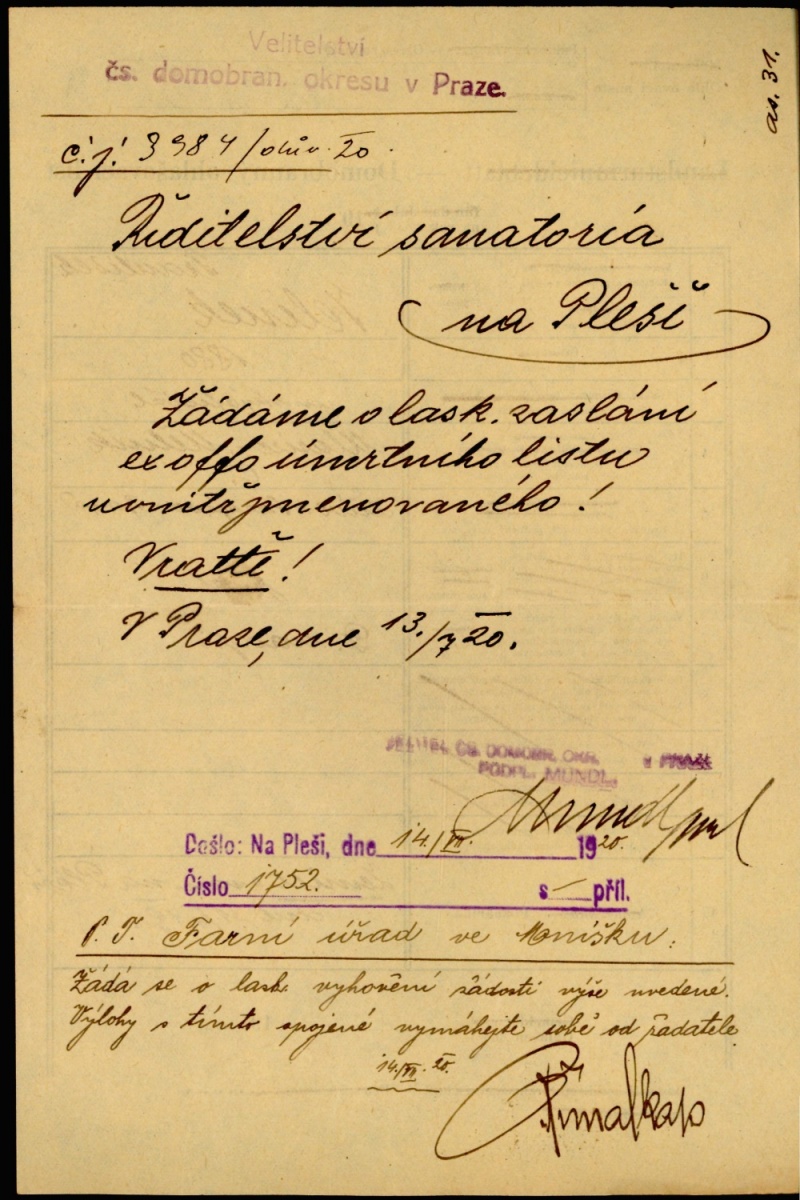 Velitelství
čs. domobran. okresu v Praze.
as. 31.
č.j. 3984/dův. 20.
Ředitelství sanatoria
na Pleši
Žádáme o lask. zaslání
ex offo úmrtního listu
uvnitřjmenovaného!
Vraťte!
V Praze, dne 13./7 20.
VELITEL ČS. DOMOBR. OKR. V PRAZE
PODPL. MUNDL.
Došlo: Na Pleši, dne 14./VII. 1920.
Číslo 1752. s — příl.
P. T. Farní úřad ve Mníšku:
Žádá se o lask. vyhovění žádosti výše uvedené.
Výlohy s tímto spojené vymáhejte sobě od žadatele.
14./VII. 20.